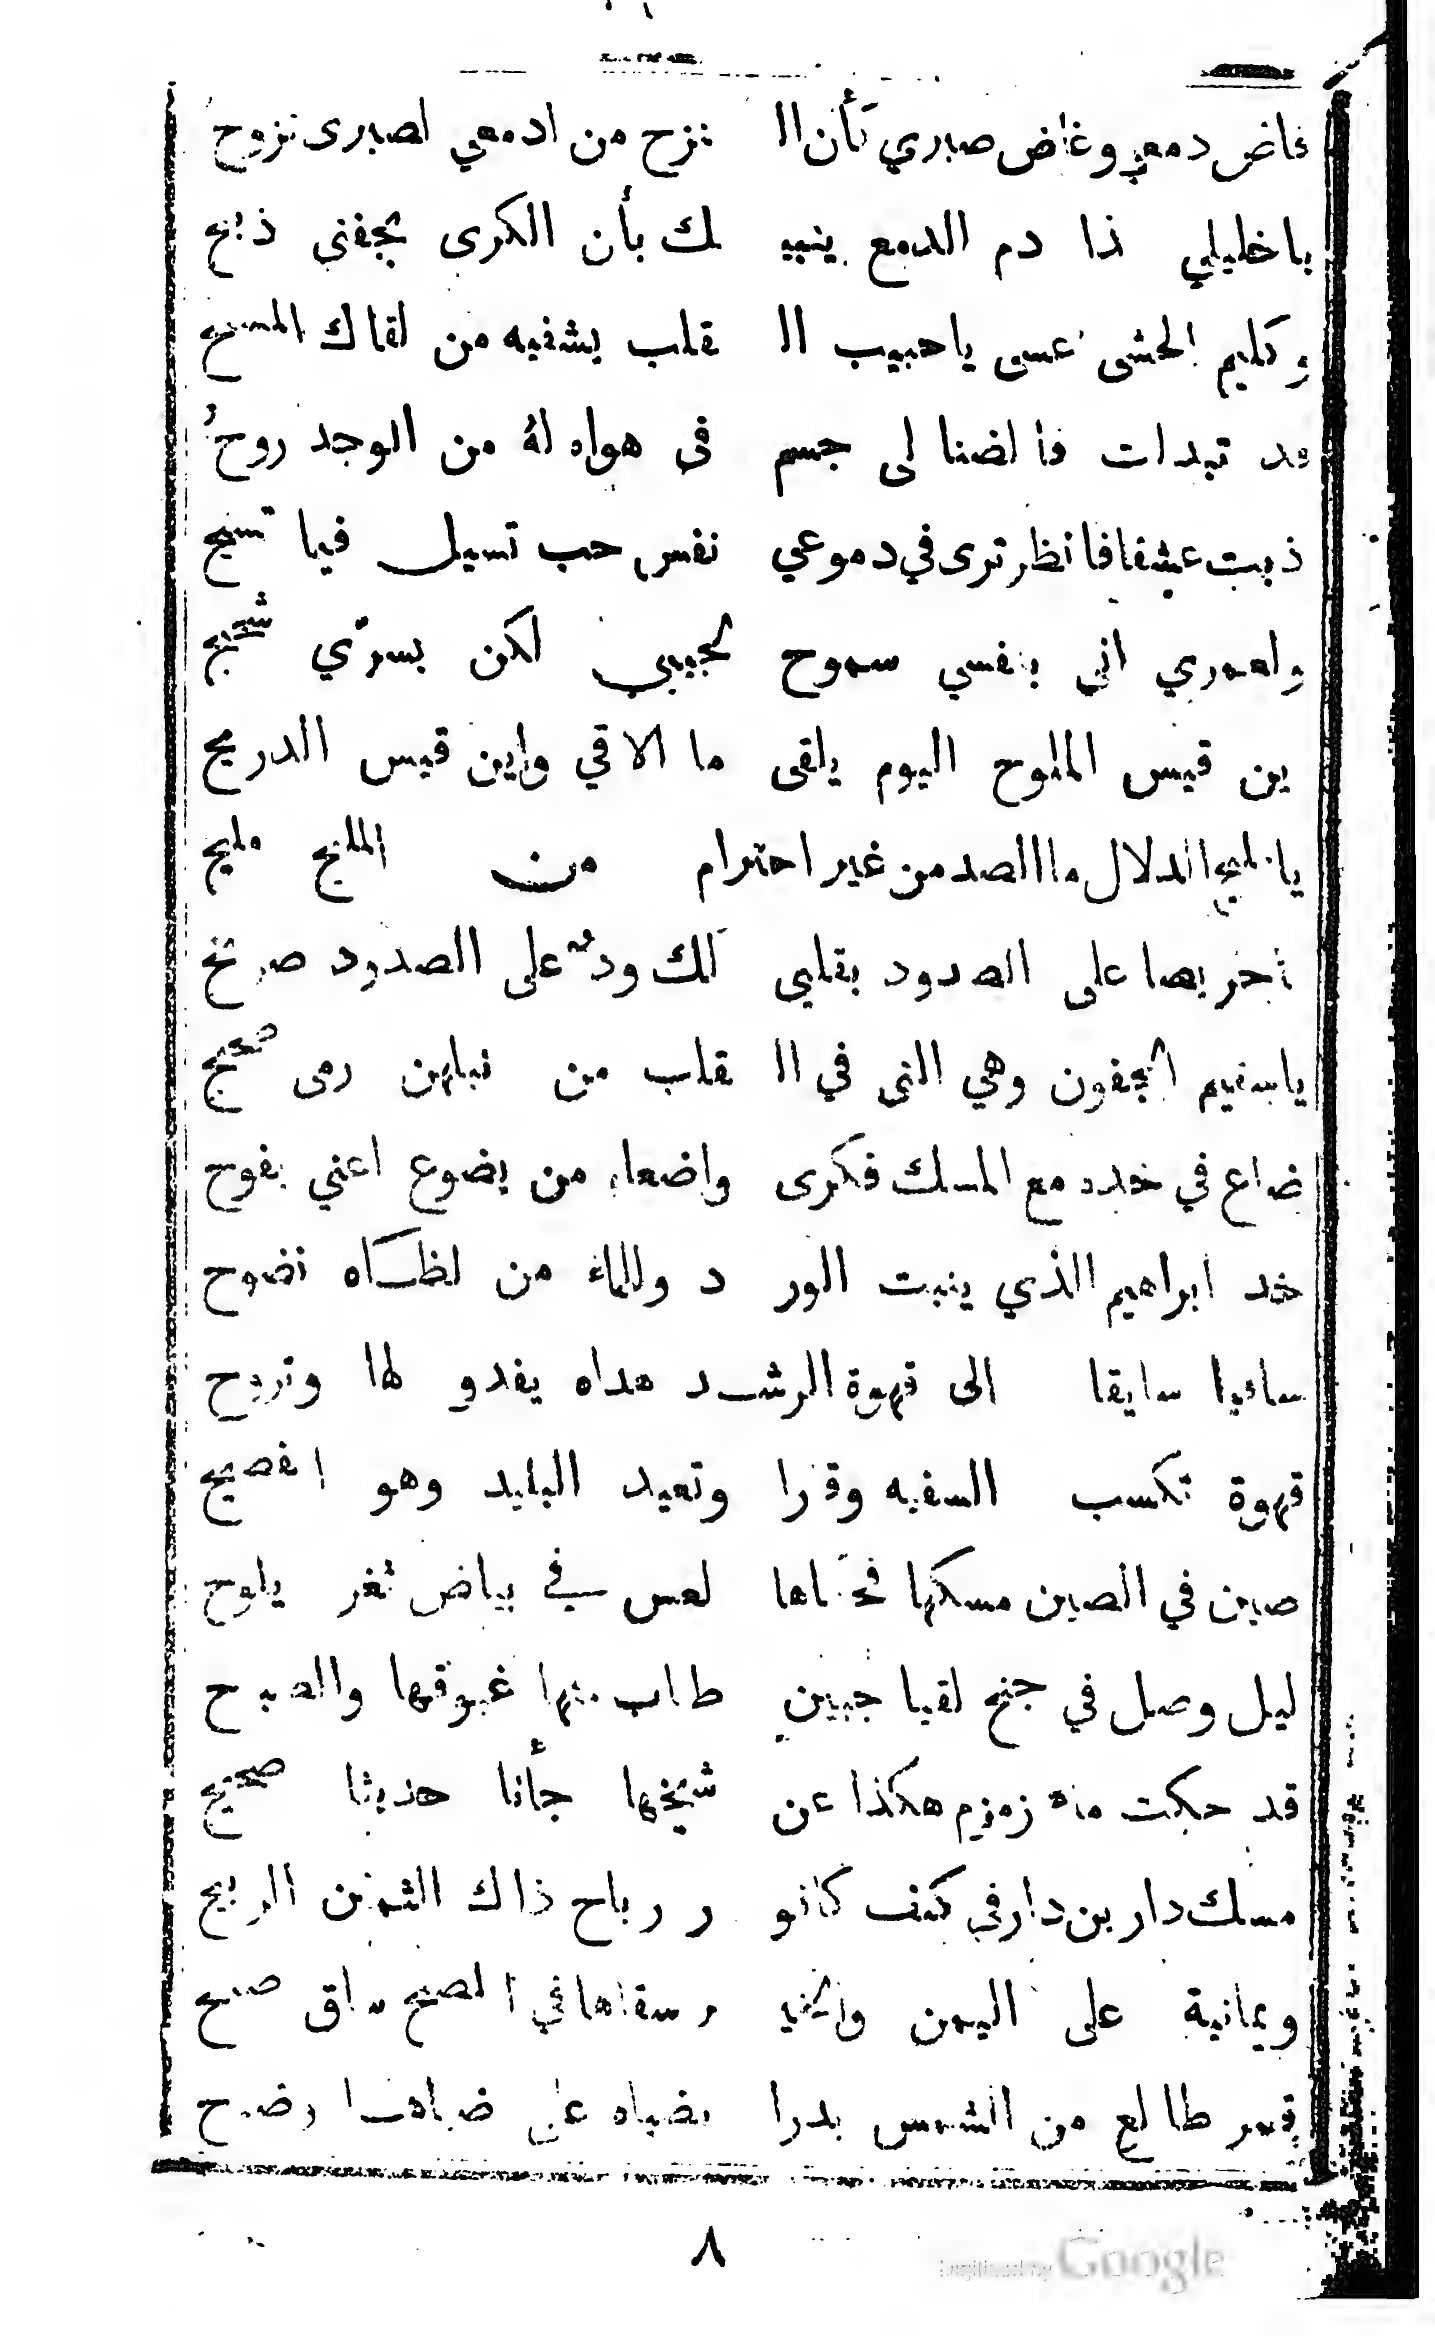 فاض دمعي وغاض صبري كأن ال نزح من ادمعي لصبرى نزوح
ياخليلي ذا دم الدمع ينبيـ ـك بأن الكرى بجفنى ذبيح
وكليم الحشى عسى ياحبيب ال قلب يشفيه من لقاك المسيح
قد تبدلت فالضنا لى جسم فى هواه لهُ من الوجد روحُ
ذبت عشقا فانظر ترى في دموعي نفس حب تسيل فيما تسيح
ولعمري اني بنفسي سموح لحبيبي لكن بسرّي شحيح
ين قيس الملوح اليوم يلقى ما الاقي واين قيس الذريح
يا مليح الدلال ما الصد من غير احترام من المليح مليح
على الصدود بقلبي لك ودّ على الصدود صريح
ياسقيم الجفون وهي التى في ال قلب من نبلهن رمى صحيح
ضاع في خده مع المسك فكرى واضعاء من يضوع اعني يفوح
خد ابراهيم الذي ينبت الور د وللماء من لظاه نضوح
ساعيا سايقا الى قهوة الرشـ ـد هداه يغدو لها وتروح
قهوة تكسب السفيه وقرا وتعيد البليد وهو الفصيح
صين في الصين مسكها فحكاها لعس في بياض ثغر يلوح
ليل وصل في جنح لقيا جبينٍ طاب منها غبوقها والصبوح
قد حكت ماء زمزم هكذا عن شيخها جأنا حديثا صحيح
مسك دار بن دار في كف كانو ر رباح ذاك الثمين الربيح
ويمانية على اليمن والخيـ ـر سقاها في الصبح ساق صبيح
قمر طالع من الشمس بدرا بضياه على ضياها وضوح
٨
Digitized by Google